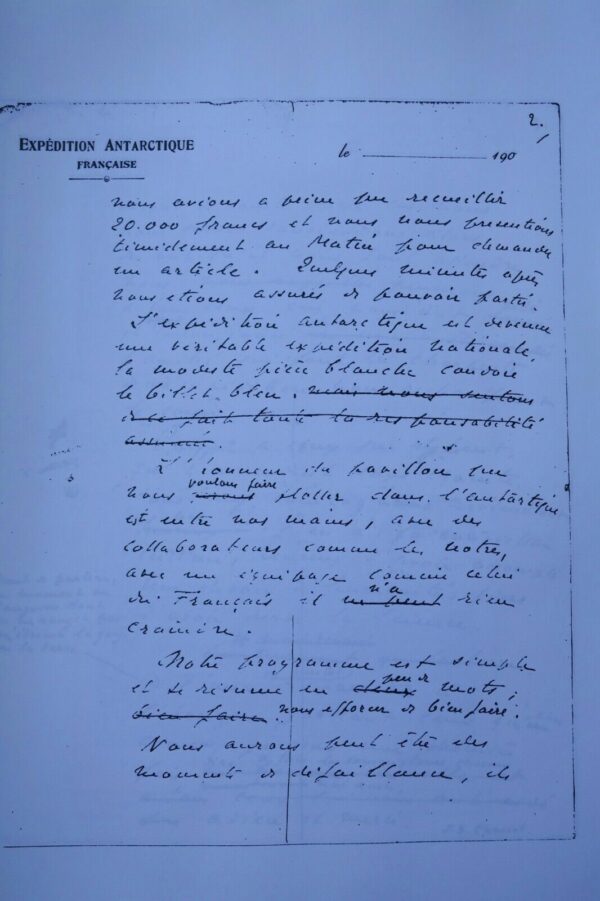 2.
EXPÉDITION ANTARCTIQUE
FRANÇAISE
le 190
nous avions a peine pu recueillir
20.000 francs et nous nous presentions
timidement au Matin pour demander
un article. Quelques minutes après
nous étions assurés de pouvoir partir.
L'expédition antarctique est devenue
une véritable expédition nationale,
la modeste pièce blanche coudoie
le billet bleu. mais nous sentons
de ce fait toute la responsabilité
assumé.
L'honneur du pavillon que
voulons faire
nous flotter dans l'antartique
est entre nos mains, avec des
collaborateurs comme les notres,
avec un équipage comme celui
n'a
du Français il ne peut rien
craindre.
Notre programme est simple
peu de
et se résume en deux mots;
bien faire nous efforcer de bien faire.
Nous aurons peut être des
moments de défaillance, ils